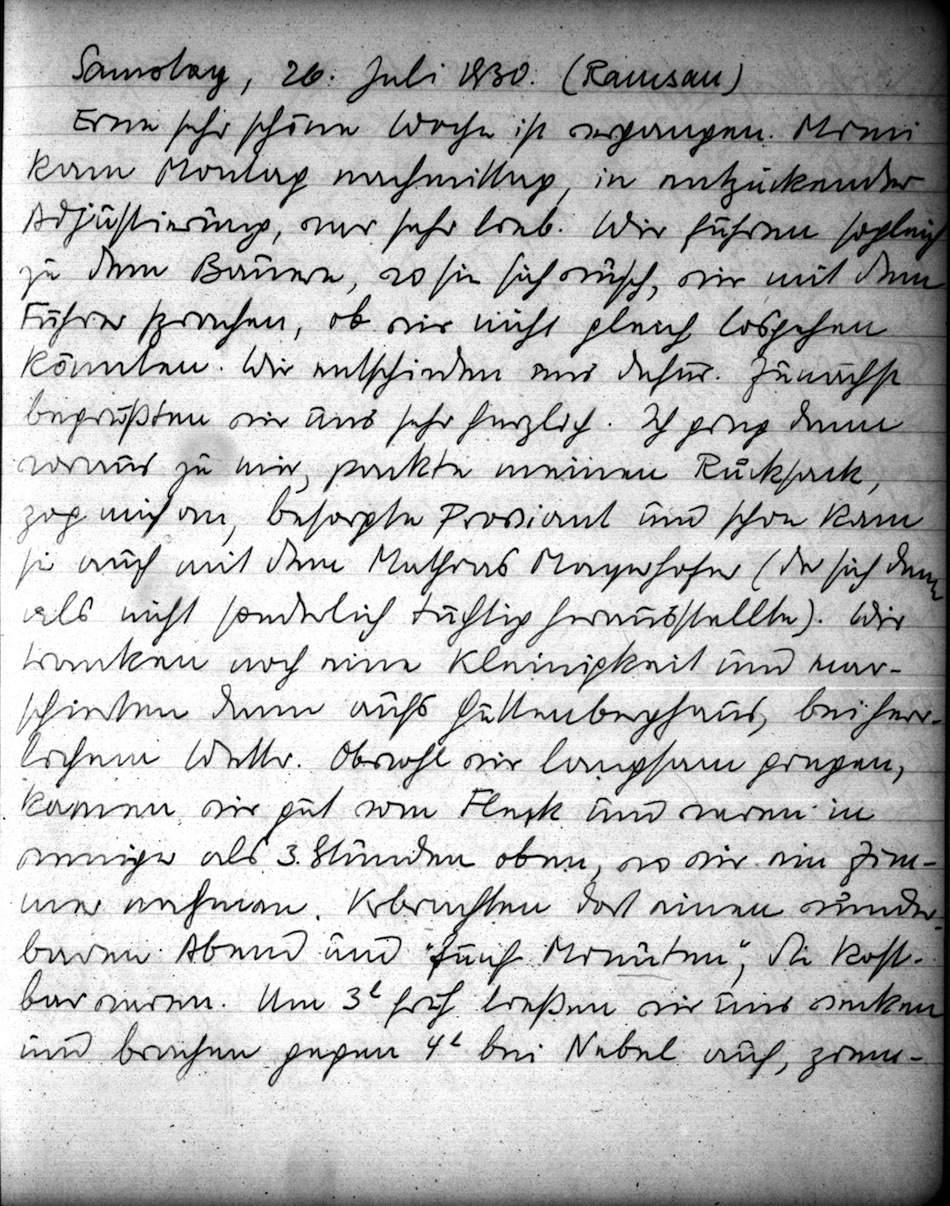 Samstag, 26. Juli 1930. (Ramsau)
Eine sehr schöne Woche ist vergangen. Mimi
kam Montag nachmittag, in entzückender
Adjüstierung, war sehr lieb. Wir fuhren sogleich
zu dem Bauern, wo sie sich wusch, wir mit dem
Führer sprachen, ob wir nicht gleich losgehen
könnten. Wir entschieden uns dafür. Zunächst
begrüßten wir uns sehr herzlich. Ich ging dann
voraus zu mir, packte meinen Rucksack,
zog mich an, besorgte Proviant und schon kam
sie auch mit dem Mathias Mayerhofer (der sich dann
als nicht sonderlich tüchtig herausstellte). Wir
tranken noch eine Kleinigkeit und mar-
schierten dann aufs Guttenberghaus, bei herr-
lichem Wetter. Obwohl wir langsam gingen,
kamen wir gut vom Fleck und waren in
weniger als 3 Stunden oben, wo wir ein Zim-
mer nahmen. Verbrachten dort einen wunder-
baren Abend und "fünf Minuten", die kost-
bar waren. Um 3h früh ließen wir uns wecken
und brachen gegen 4h bei Nebel auf, ziem-